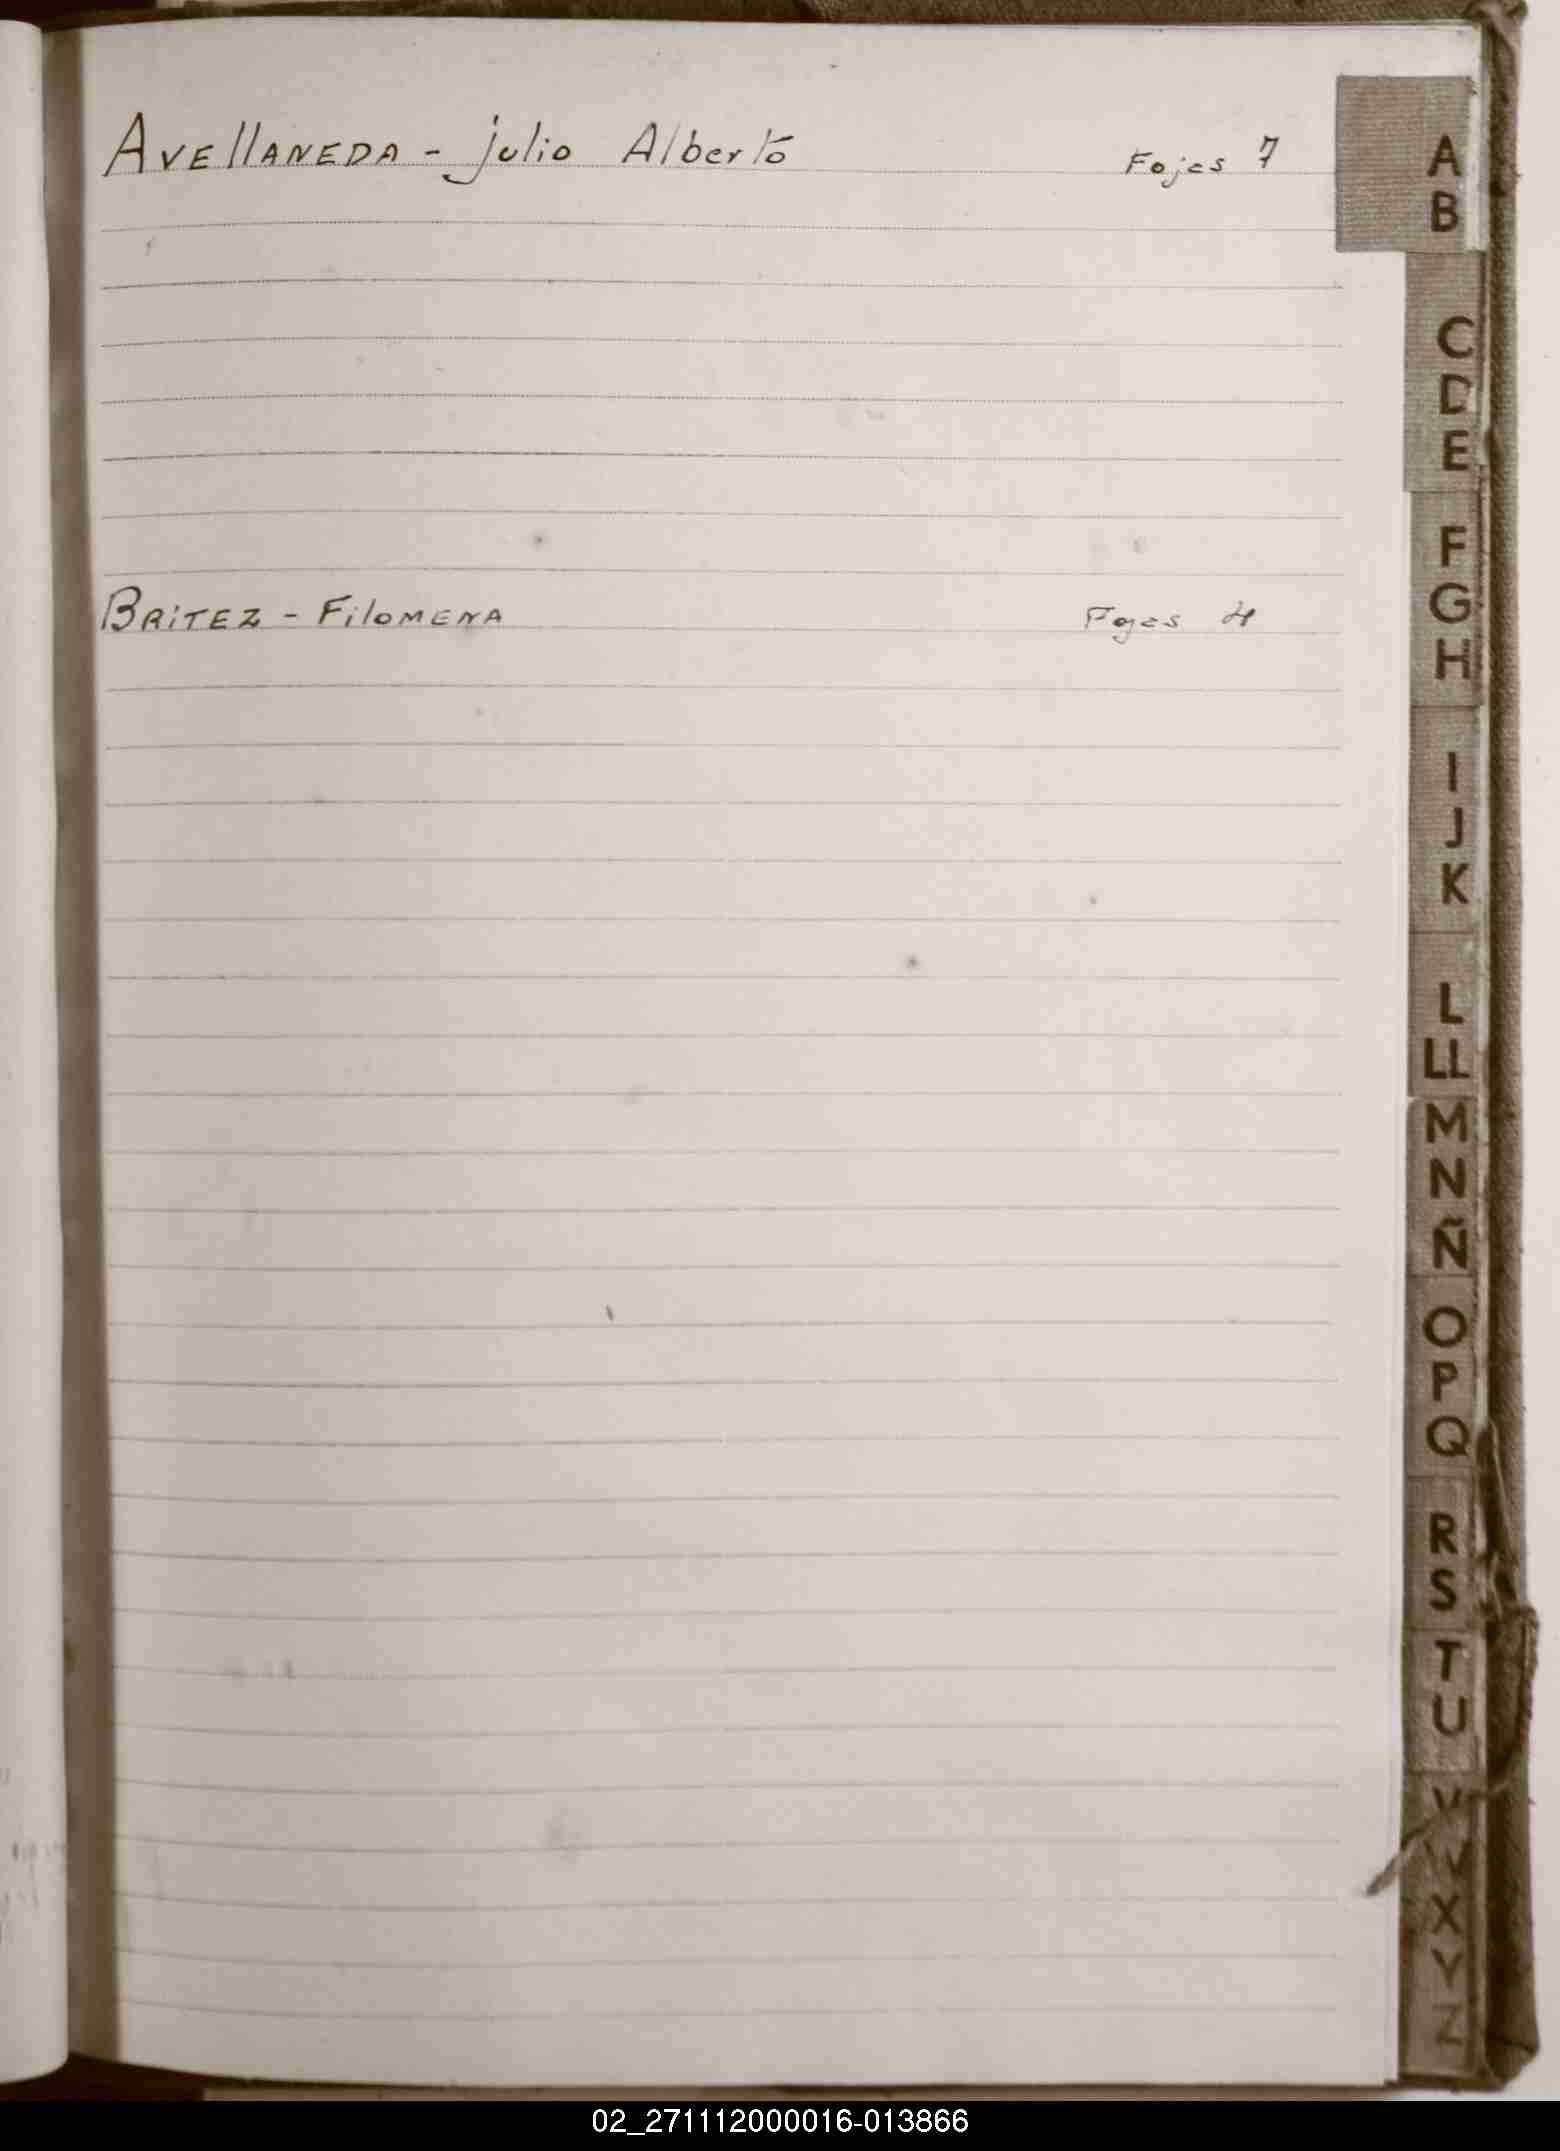 AVEllANEDA - julio Alberto Fojas 7
BRiTEZ - FiloMENA Fojas 4
A
B
C
D
E
F
G
H
I
J
K
L
LL
M
N
Ñ
O
P
Q
R
S
T
U
V
W
X
Y
Z
02_271112000016-013866